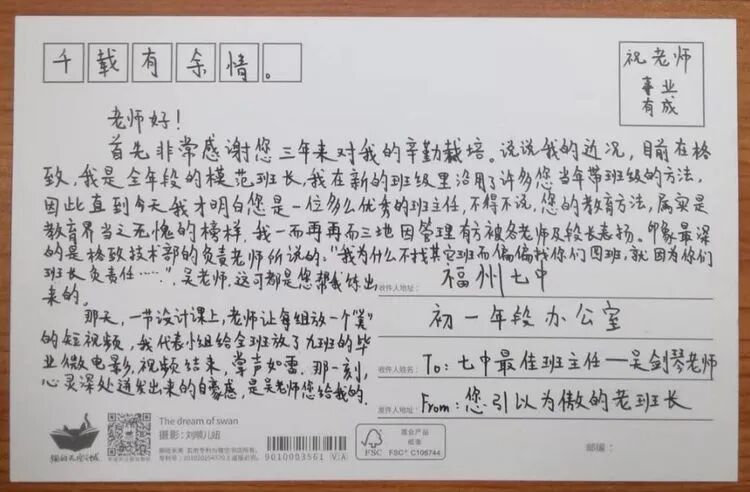 千载有余情。
祝老师
事业
有成
老师好！
首先非常感谢您三年来对我的辛勤栽培。说说我的近况，目前在格
致，我是全年段的模范班长，我在新的班级里沿用了许多您当年带班级的方法，
因此直到今天我才明白您是一位多么优秀的班主任，不得不说，您的教育方法，属实是
教育界当之无愧的榜样，我一而再再而三地因管理有方被各老师及段长表扬。印象最深
的是格致技术部的负责老师所说的：“我为什么不找其它班而偏偏找你们四班，就因为你们
班长负责任……”，吴老师，这可都是您帮我练出
来的。
那天，一节设计课上，老师让每组放一个“美”
的短视频，我代表小组给全班放了九班的毕
业微电影，视频结束，掌声如雷。那一刻，
心灵深处迸发出来的自豪感，是吴老师您给我的。
收件人地址：福州七中
初一年段办公室
收件人姓名：To：七中最佳班主任—吴剑琴老师
发件人地址：From：您引以为傲的老班长
The dream of swan
摄影：刘顺儿妞
9010003561 (V)A
混合产品
纸张
FSC
FSC® C106744
邮编：